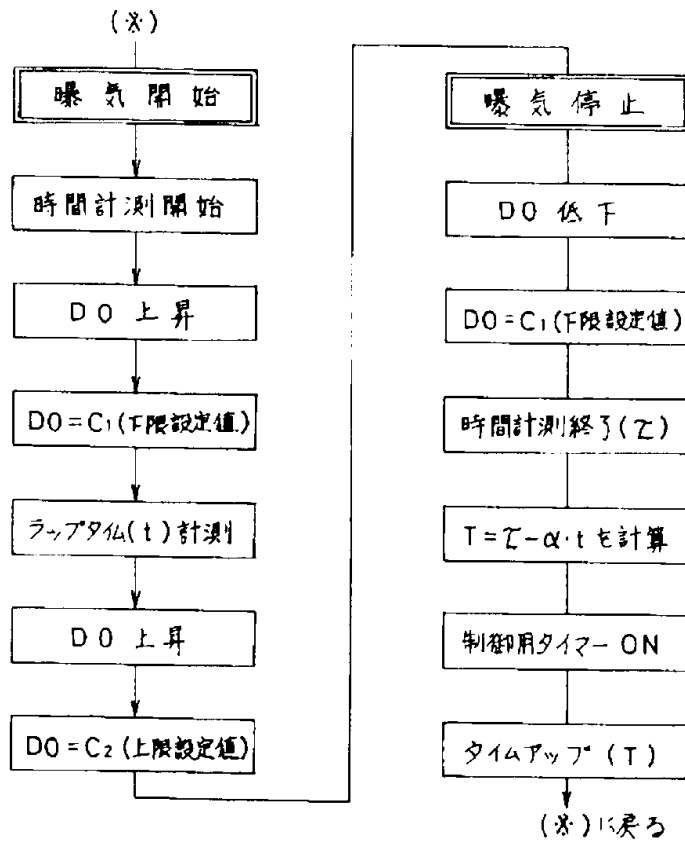 (※)
曝気開始
時間計測開始
DO 上昇
DO=C₁(下限設定値)
ラップタイム(t)計測
DO 上昇
DO=C₂(上限設定値)
曝気停止
DO 低下
DO=C₁(下限設定値)
時間計測終了(τ)
T=τ-α·tを計算
制御用タイマーON
タイムアップ(T)
(※)に戻る